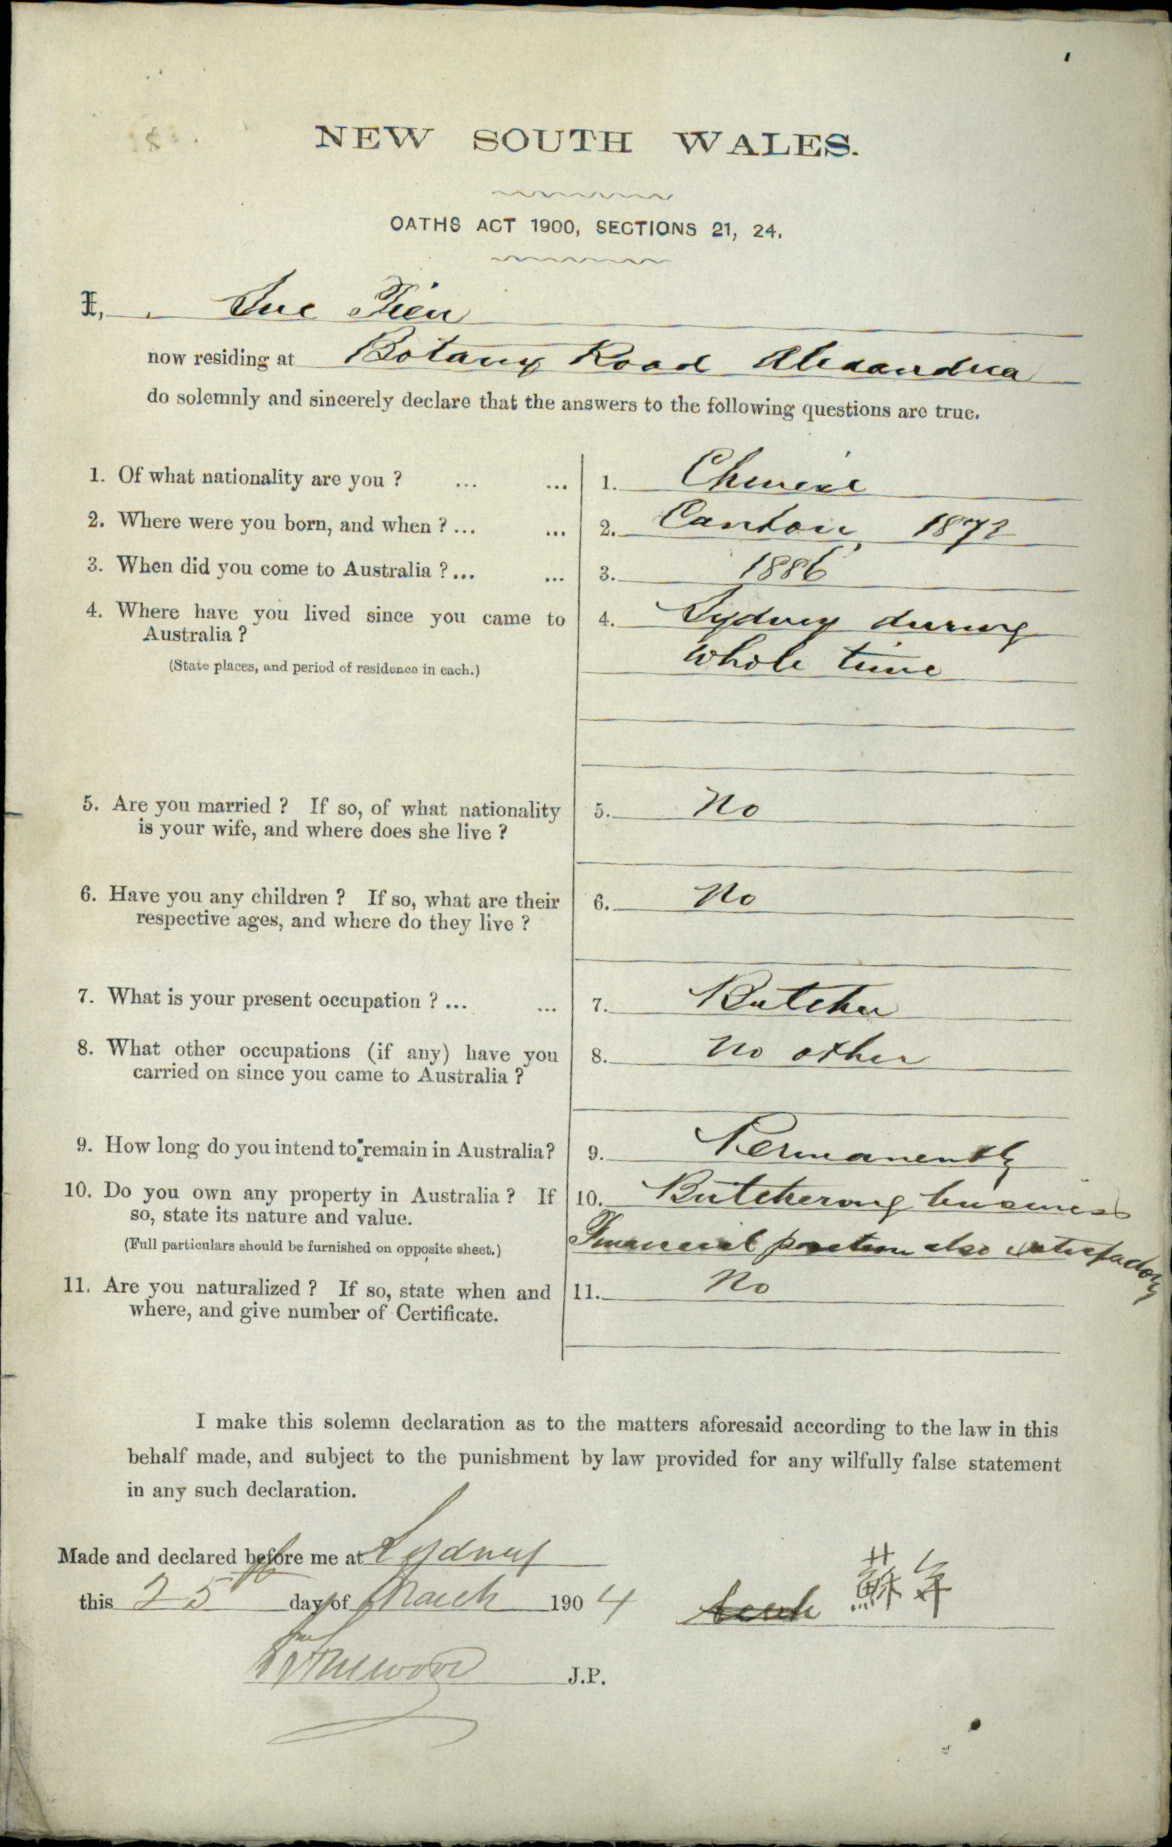 NEW SOUTH WALES.
OATHS ACT 1900, SECTIONS 21, 24.
I, Sue Fien
now residing at Botany Road Alexandria
do solemnly and sincerely declare that the answers to the following questions are true.
1. Of what nationality are you ? ... ... 1. Chinese
2. Where were you born, and when ? ... ... 2. Canton 1872
3. When did you come to Australia ? ... ... 3. 1886
4. Where have you lived since you came to 4. Sydney during
Australia ?
(State places, and period of residence in each.) whole time
5. Are you married ? If so, of what nationality 5. No
is your wife, and where does she live ?
6. Have you any children ? If so, what are their 6. No
respective ages, and where do they live ?
7. What is your present occupation ? ... ... 7. Butcher
8. What other occupations (if any) have you 8. No other
carried on since you came to Australia ?
9. How long do you intend to remain in Australia? 9. Permanently
10. Do you own any property in Australia ? If 10. Butchering business
so, state its nature and value.
(Full particulars should be furnished on opposite sheet.) Financial position also satisfactory
11. Are you naturalized ? If so, state when and 11. No
where, and give number of Certificate.
I make this solemn declaration as to the matters aforesaid according to the law in this
behalf made, and subject to the punishment by law provided for any wilfully false statement
in any such declaration.
Made and declared before me at Sydney
this 25th day of March 1904 蘇年
J.P.